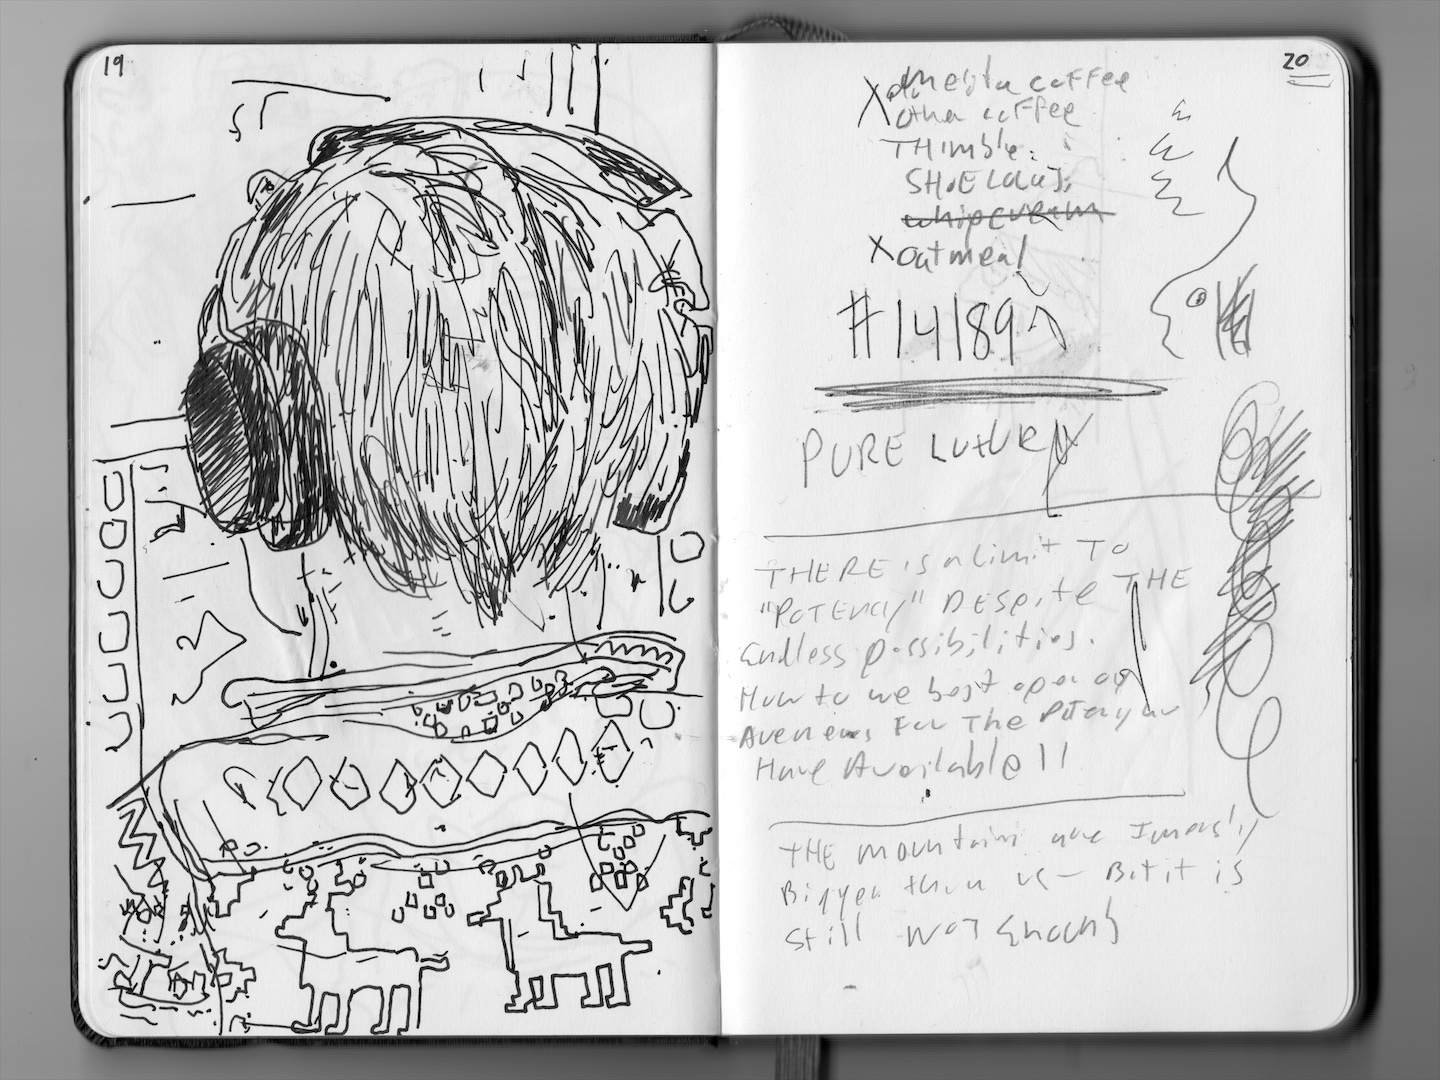 19
20
X coffee
other coffee
THimble.
SHOE LACES
whipcream
X oatmeal
#14189
PURE
THERE is a limit TO
"POTENCY" DEspite THE
Endless possibilities.
How to we best open up
Avenues For The
Have Available!!
THE mountains are
Bigger than us – But it is
still NOT Enough